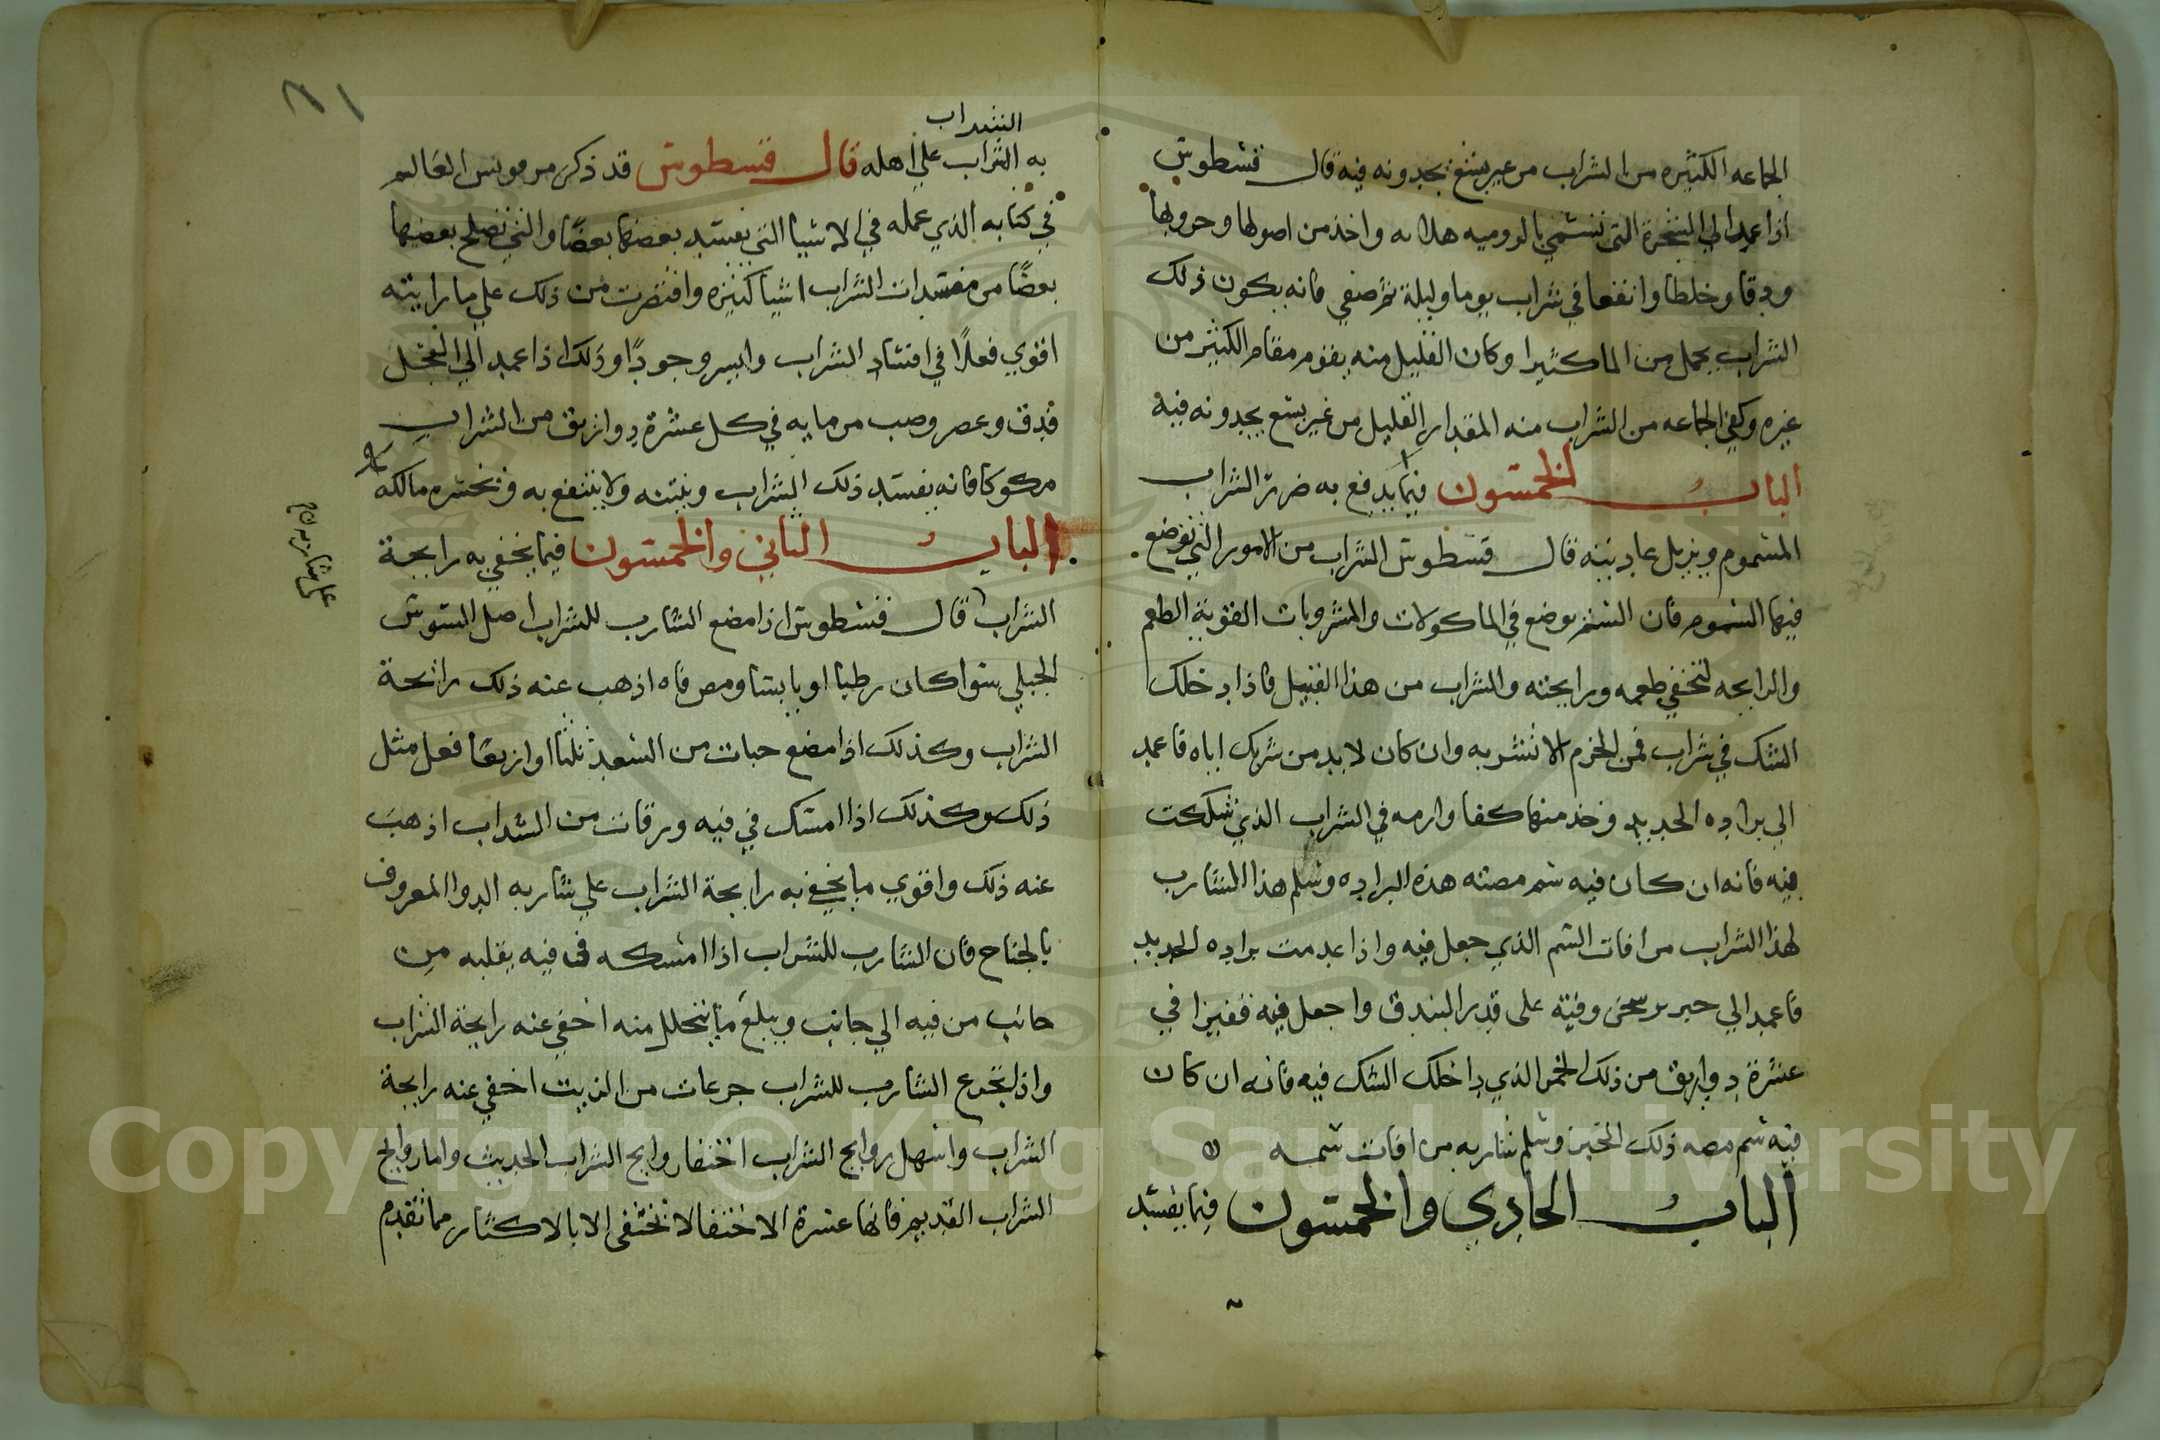 الجماعه الكثيره من الشراب من غير بشع يجدونه فيه قال قسطوس
اذا عمد الي الشجرة التي تسمي بالروميه واخذ من اصولها
ودقا وخلطا وانقعا في شراب يوما وليلة ثم صفي فانه يكون ذلك
الشراب يحمل من الما كثيرا وكان القليل منه يقوم مقام الكثير من
غيره وكفي الجماعه من الشراب منه المقدار القليل من غير بشع يجدونه فيه
الباب الخمسون فيما يدفع به ضرر الشراب
المسموم ويزيل عاديته قال قسطوس الشراب من الامور التي توضع
فيها السموم فان السم يوضع في الماكولات والمشروبات القوية الطعم
والرايحه لتخفي طعمه ورايحته والشراب من هذا القبيل فاذا دخلك
الشك في شراب فمن الحزم الا تشربه وان كان لا بد من شربك اياه فاعمد
الي براده الحديد وخذ منها كفا وارمه في الشراب الذي شككت
فيه فانه ان كان فيه سم مصته هذه البراده وسلم هذا الشارب
لهذا الشراب من افات السم الذي جعل فيه واذا عدمت براده الحديد
فاعمد الي خبز وفته على قدر البندق واجعل فيه قفيزا في
عشرة دواريق من ذلك الخمر الذي داخلك الشك فيه فانه ان كان
فيه سم مصه ذلك الخبز وسلم شاربه من افات سمه
الباب الحادي والخمسون فيما يفسد
٨١
الشراب
به الشراب علي اهله قال قسطوس قد ذكر العالم
في كتابه الذي عمله في الاشيا التي يفسد بعضها بعضا والتي يصلح بعضها
بعضا من مفسدات الشراب اشيا كثيره واقتصرت من ذلك علي ما رايته
اقوي فعلا في افساد الشراب وايسر وجودا وذلك اذا عمد الي الفجل
فدق وعصر وصب من مايه في كل عشرة دواريق من الشراب
مكوكا فانه يفسد ذلك الشراب وينتنه ولا ينتفع به ويخسره مالكه
الباب الثاني والخمسون فيما يخفي به رايحة
الشراب قال قسطوس اذا مضغ الشارب للشراب اصل السوس
الجبلي سوا كان رطبا او يابسا ومص فاه اذهب عنه ذلك رائحة
الشراب وكذلك اذا مضغ حبات من السعد ثلثا او اربعا فعل مثل
ذلك وكذلك اذا امسك في فيه ورقات من السداب اذهب
عنه ذلك واقوي ما يخفي به رايحة الشراب علي شاربه الدوا المعروف
بالجناح فان الشارب للشراب اذا امسكه في فيه يقلبه من
جانب من فيه الي جانب ويبلع ما يتحلل منه اخفي عنه رايحة الشراب
واذا تجرع الشارب للشراب جرعات من الزيت اخفي عنه رايحة
الشراب واسهل روايح الشراب اختفا روايح الشراب الحديث واما روايح
الشراب القديم فانها عسرة الاختفا لا تختفي الا بالاكثار مما تقدم